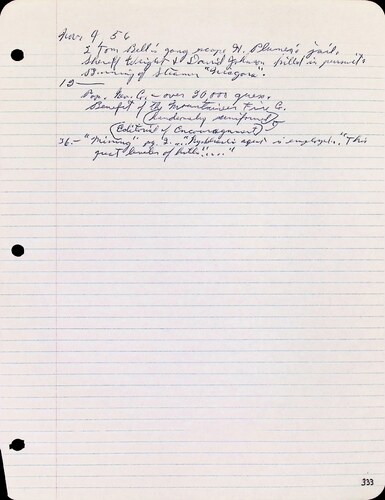 Nov. 9, 56
2 Tom Bell's gang escape H. Plumer's jail.
Sheriff Wright & David Johnson killed in pursuit.
Burning of Steamer "Niagara".
12 —
Pop. Nev. C. – over 20,000 guess.
Benefit of the Mountaineer Fire C.
(Handsomely uniformed)
(Editorial of Encouragement)
36. – "Mining" pg. 2. ... "Hydraulic agent is employed. "This
great leveler of hills" ....."
333